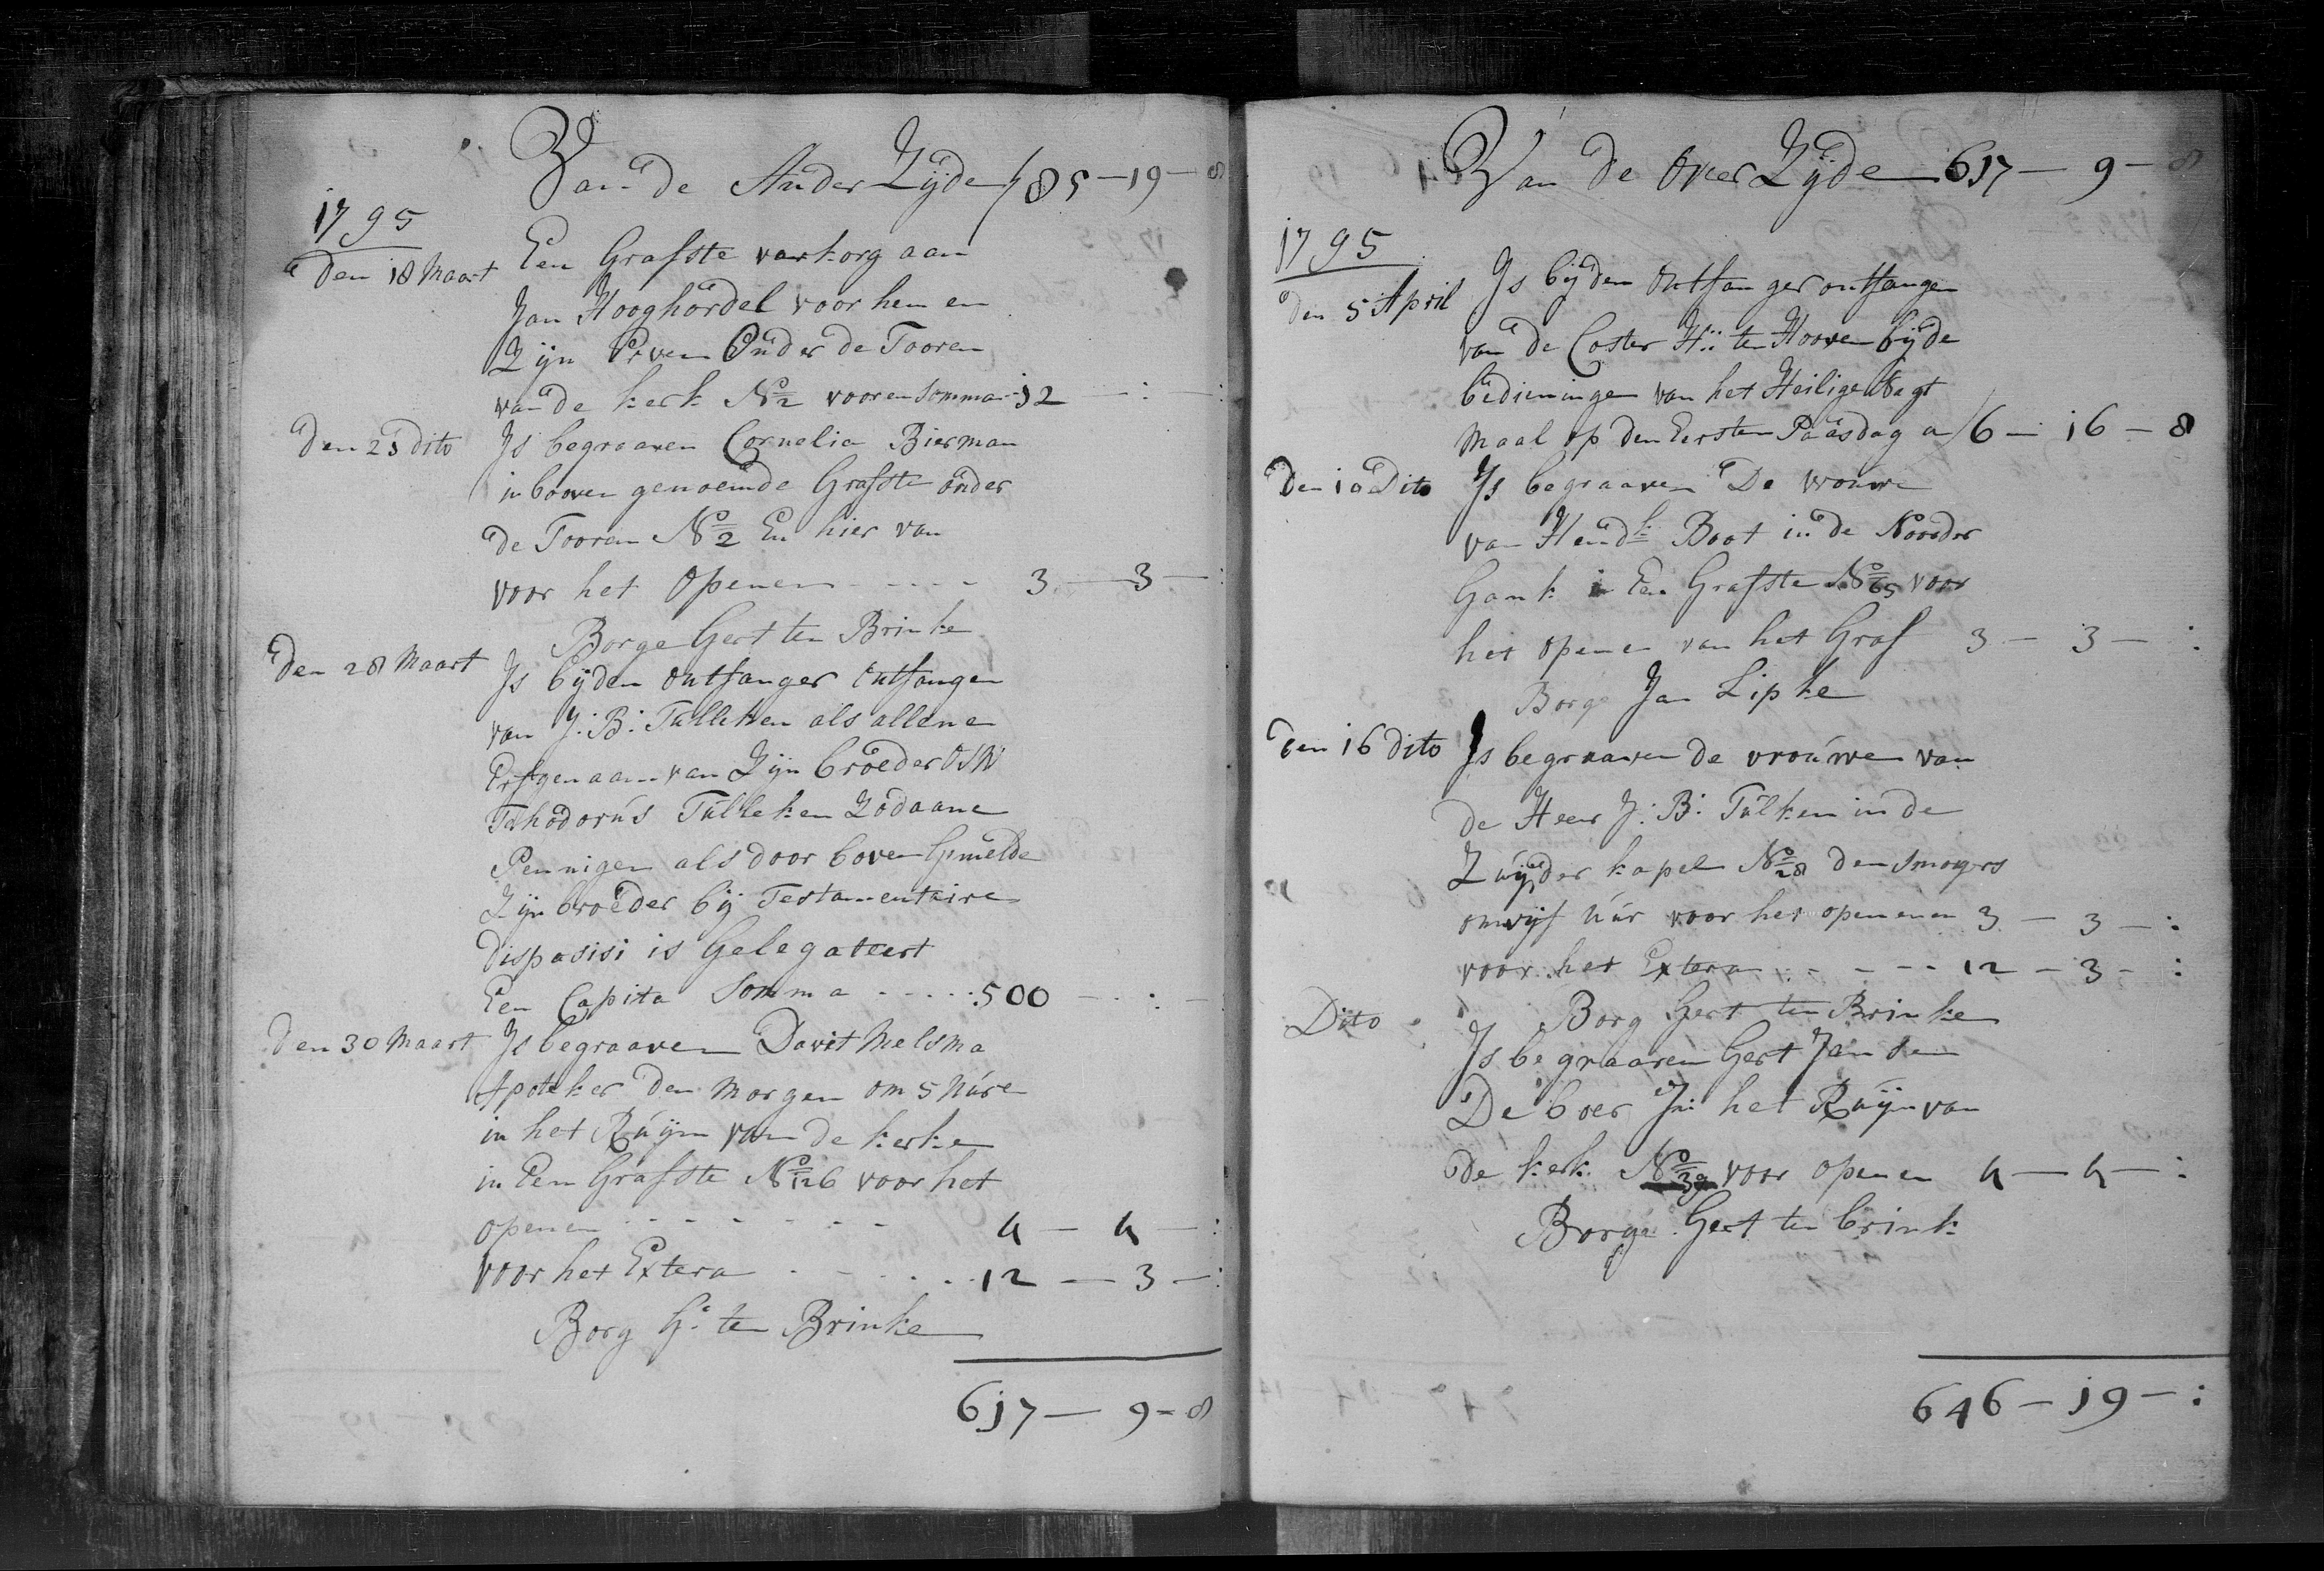 Van de Ander Zijde f 85-19-8
1795
den 18 Maart Een Grafste varkorg aan
Jan Hooghordel voor hem en
Zijn Erven Onder de Tooren
van de kerk No 2 vooren Somma 12 - : - :
den 25 dito Js begraaven Cornelia Bierman
in booven genoemde Grafste onder
de Tooren No 2 En hier van
voor het Openen - - - - 3 - 3 - :
Borge Gert ten Brinke
den 28 Maart Js bij den ontfanger ontfangen
van J: B: Tulleken als allene
Erfgenaam van Zijn broeder
Tehodorus Tulleken Zodaane
Pennigen als door boven Gemelde
Zijn broeder bij Testamentaire
disposisi is Gelegateert
Een Capita Somma - - - - 500 - : -
den 30 Maart Js begraaven Davit Melsma
Apoteker den Morgen om 5 uure
in het Ruijm van de kerke
in Een Grafste No 126 voor het
openen - - - - - - - 4 - 4 - :
voor het Extera - - - - - 12 - 3 - :
Borg G: ten Brinke
617 - 9 - 8
Van de over Zijde 617 - 9 - 8
1795
den 5 April Js bij den Ontfanger ontfangen
van de Coster H: ten Hooven bij de
bedieninge van het Heilige Nagt
Maal op den Eersten Paasdag a f 6 - 16 - 8
den 10 Dito Js begraaven De vrouwe
van Hendk Boot in de Noorder
Gank in Een Grafste No 65 voor
het openen van het Graf 3 - 3 - :
Borge Jan Lipke
den 16 dito Js begraaven de vrouwen van
de Heer J: B: Tulken in de
Zuijder kapel No 28 den Smorgers
om vijf Uur voor het openenen 3 - 3 - :
voor het Extera - - - - 12 - 3 - :
Borg Gert ten Brinke
Dito Js begraaven Gert Jansen
De boer Jn het Ruijm van
de kerk No 39 voor openen 4 - 4 - :
Borge Gert ten brink
646 - 19 - :